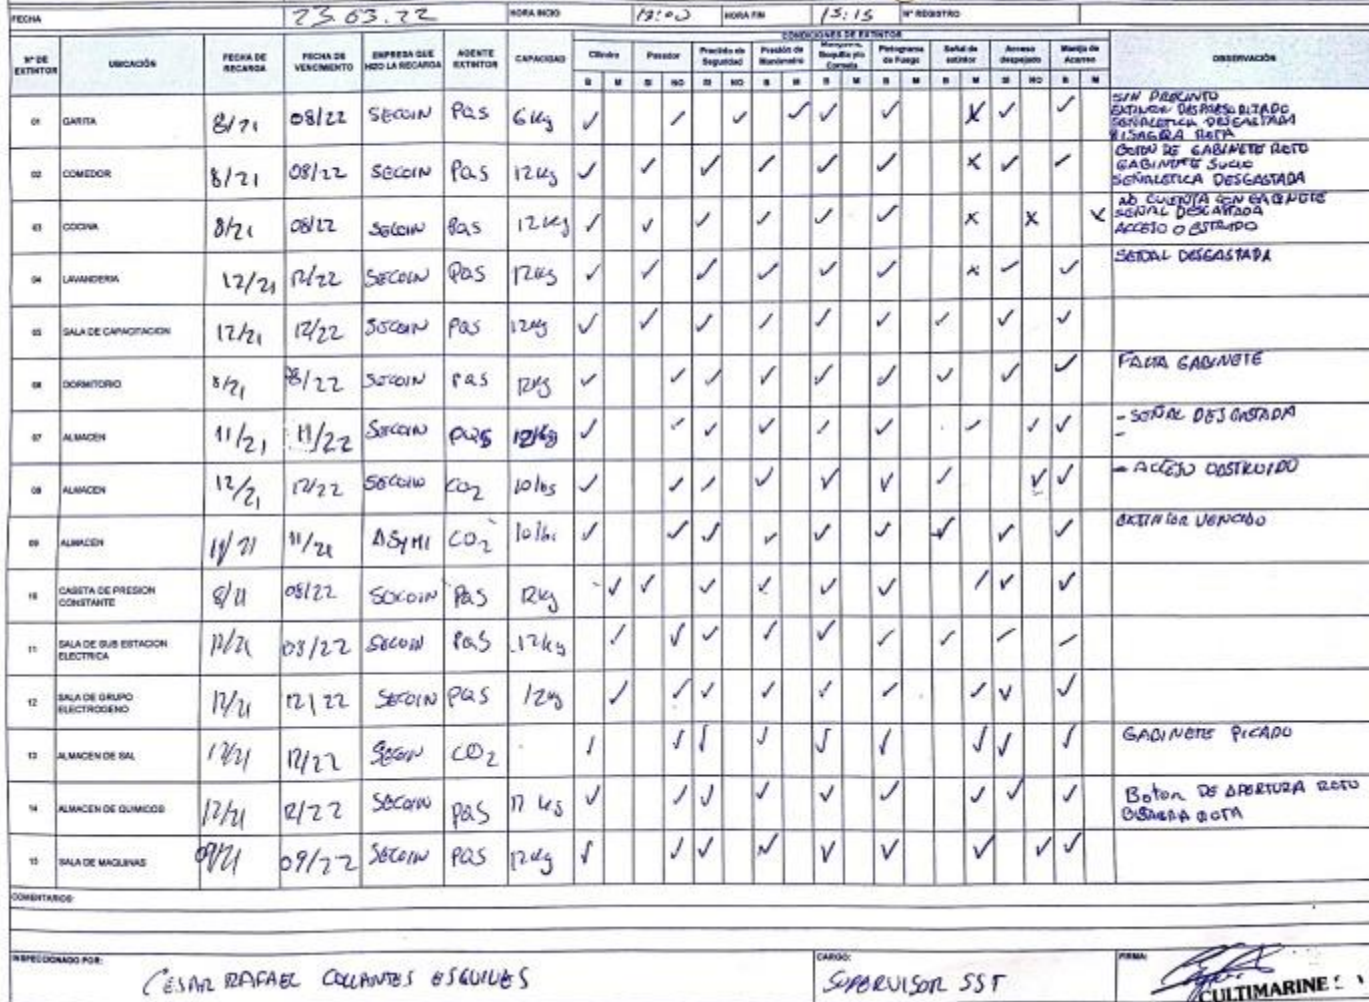 FECHA 23.03.22 HORA INICIO HORA FIN 15:15 N° REGISTRO
CONDICIONES DE EXTINTOR
N° DE EXTINTOR UBICACIÓN FECHA DE RECARGA FECHA DE VENCIMIENTO EMPRESA QUE HIZO LA RECARGA AGENTE EXTINTOR CAPACIDAD Cilindro Pasador Precinto de Seguridad Presión de Manómetro Manguera, Boquilla y/o Corneta Pictograma de Fuego Señal de extintor Acceso despejado Manija de Acarreo OBSERVACIÓN
B M SI NO SI NO B M B M B M B M SI NO B M
01 GARITA 8/21 08/22 SECOIN PQS 6 Kg ✓ ✓ ✓ ✓ ✓ ✓ X ✓ ✓ SIN PRECINTO
EXTINTOR DESPRESURIZADO
SEÑALETICA DESGASTADA
BISAGRA ROTA
02 COMEDOR 8/21 08/22 SECOIN PQS 12 Kg ✓ ✓ ✓ ✓ ✓ ✓ X ✓ ✓ BOTON DE GABINETE ROTO
GABINETE SUCIO
SEÑALETICA DESGASTADA
03 COCINA 8/21 08/22 SECOIN PQS 12 Kg ✓ ✓ ✓ ✓ ✓ ✓ X X X NO CUENTA CON GABINETE
SEÑAL DESGASTADA
04 LAVANDERIA 12/21 12/22 SECOIN PQS 12Kg ✓ ✓ ✓ ✓ ✓ ✓ X ✓ ✓ SEÑAL DESGASTADA
05 SALA DE CAPACITACION 12/21 12/22 SECOIN PQS 12Kg ✓ ✓ ✓ ✓ ✓ ✓ ✓ ✓ ✓
06 DORMITORIO 8/21 08/22 SECOIN PQS 12Kg ✓ ✓ ✓ ✓ ✓ ✓ ✓ ✓ ✓ FALTA GABINETE
07 ALMACEN 11/21 11/22 SECOIN PQS ✓ ✓ ✓ ✓ ✓ ✓ ✓ ✓ ✓ - SEÑAL DESGASTADA
-
08 ALMACEN 12/21 12/22 SECOIN CO2 10 lbs ✓ ✓ ✓ ✓ ✓ ✓ ✓ ✓ ✓ - ACCESO OBSTRUIDO
09 ALMACEN 11/21 11/21 ASYMI CO2 10 lbs ✓ ✓ ✓ ✓ ✓ ✓ ✓ ✓ ✓ EXTINTOR VENCIDO
10 CASETA DE PRESION CONSTANTE 8/21 08/22 SECOIN PQS 12Kg ✓ ✓ ✓ ✓ ✓ ✓ ✓ ✓ ✓
11 SALA DE SUB ESTACION ELECTRICA 12/21 08/22 SECOIN PQS 12Kg ✓ ✓ ✓ ✓ ✓ ✓ ✓ ✓ ✓
12 SALA DE GRUPO ELECTROGENO 12/21 12/22 SECOIN PQS 12Kg ✓ ✓ ✓ ✓ ✓ ✓ ✓ ✓ ✓
13 ALMACEN DE SAL 12/21 12/22 SECOIN CO2 ✓ ✓ ✓ ✓ ✓ ✓ ✓ ✓ ✓ GABINETE PICADO
14 ALMACEN DE QUIMICOS 12/21 12/22 SECOIN PQS 12 Kg ✓ ✓ ✓ ✓ ✓ ✓ ✓ ✓ ✓ Boton DE APERTURA ROTO
BISAGRA ROTA
15 SALA DE MAQUINAS 09/21 09/22 SECOIN PQS 12Kg ✓ ✓ ✓ ✓ ✓ ✓ ✓ ✓ ✓
COMENTARIOS:
INSPECCIONADO POR: CESAR RAFAEL COLLANTES CARGO: SUPERVISOR SST FIRMA:
CULTIMARINE